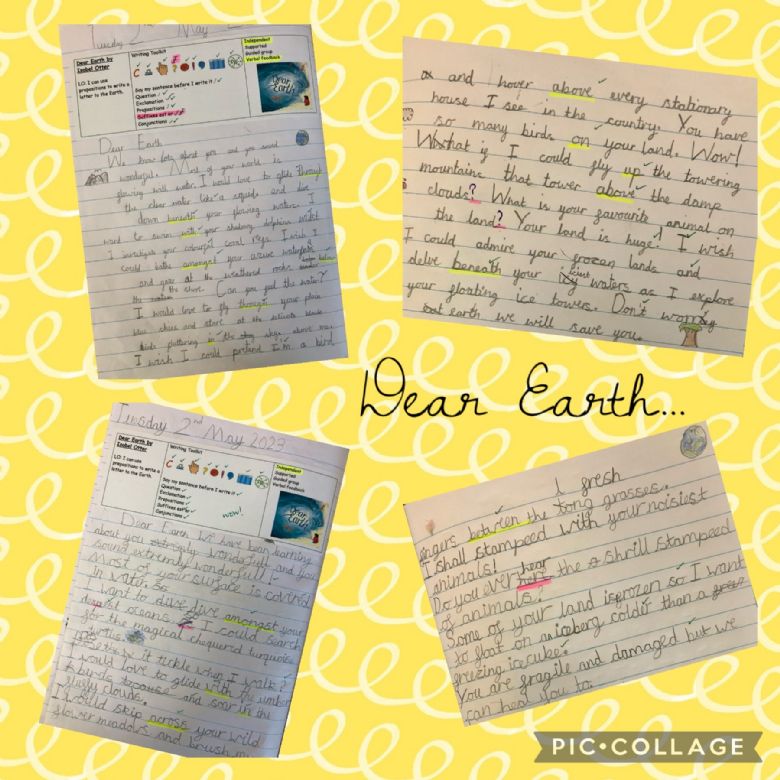 Tuesday 2nd May
Dear Earth by
Isabel Otter
LO: I can use
prepositions to write a
letter to the Earth.
Writing Toolkit
Say my sentence before I write it
Question
Exclamation
Prepositions
Suffixes est or
Conjunctions
Independent
Supported
Guided group
Verbal Feedback
Dear Earth
Dear Earth
We know lots about you and you sound
wonderful. Most of your world is
glowing with water. I would love to glide through
the clear water like a squid and dive
down beneath your glowing waters. I
want to swim with your dolphins whilst
I investigate your colourful coral reefs. I wish I
could bathe amongst your azure waterfalls
and gaze at the weathered rocks below
the shore. Can you feel the water?
I would love to fly through your plain
blue skies and stare at the delicate
birds fluttering in the sky above me.
I wish I could pretend I'm a bird
and hover above every stationary
house I see in the country. You have
so many birds on your land. Wow!
What if I could fly up the towering
mountains that tower above the damp
clouds? What is your favourite animal on
the land? Your land is huge! I wish
I could admire your frozen lands and
delve beneath your waters as I explore
your floating ice towers. Don't worry
earth we will save you.
Dear Earth...
Tuesday 2nd May 2023
Dear Earth by
Isabel Otter
LO: I can use
prepositions to write a
letter to the Earth.
Writing Toolkit
Say my sentence before I write it
Question
Exclamation
Prepositions
Suffixes est
Conjunctions
wow!
Independent
Supported
Guided group
Verbal Feedback
Dear Earth
Dear Earth We have been learning
about you and you
sound extremely wonderfull!
Most of your surface is covered
in water. So
I want to dive amongst your
deepest oceans I could search
for the magical chequered turquoise
turtles.
it tickle when I walk?
I would love to glide with the
birds and soar in the
fluffy clouds.
I would skip across your wild
flower meadows and brush my
fingers between the long grasses.
I shall stampeed with your noisiest
animals!
Do you ever hear the shrill stampeed
of animals?
Some of your land is frozen so I want
to gloat on an iceberg colder than a
freezing ice cube.
You are fragile and damaged but we
can heal you to.
PIC•COLLAGE